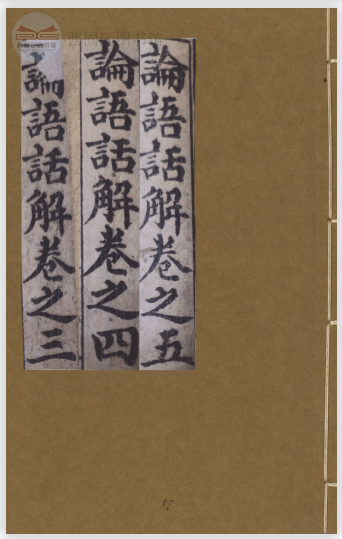 論語話解卷之五
論語話解卷之四
論語話解卷之三